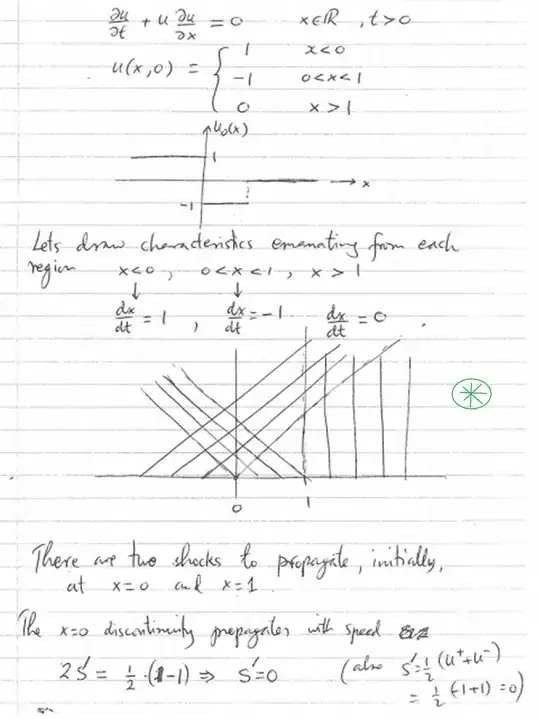 ∂u/∂t + u ∂u/∂x = 0    x∈ℝ, t>0
u(x,0) = { 1    x<0
-1    0<x<1
0    x>1
u₀(x)
1
x
-1
Lets draw characteristics emanating from each
region    x<0,    0<x<1,    x>1
↓    ↓
dx/dt = 1,    dx/dt = -1    dx/dt = 0.
0    1
There are two shocks to propagate, initially,
at x=0 and x=1.
The x=0 discontinuity propagates with speed
2S' = 1/2·(1-1) ⇒ S'=0    (also S'=1/2(u⁺+u⁻)
= 1/2(-1+1)=0)